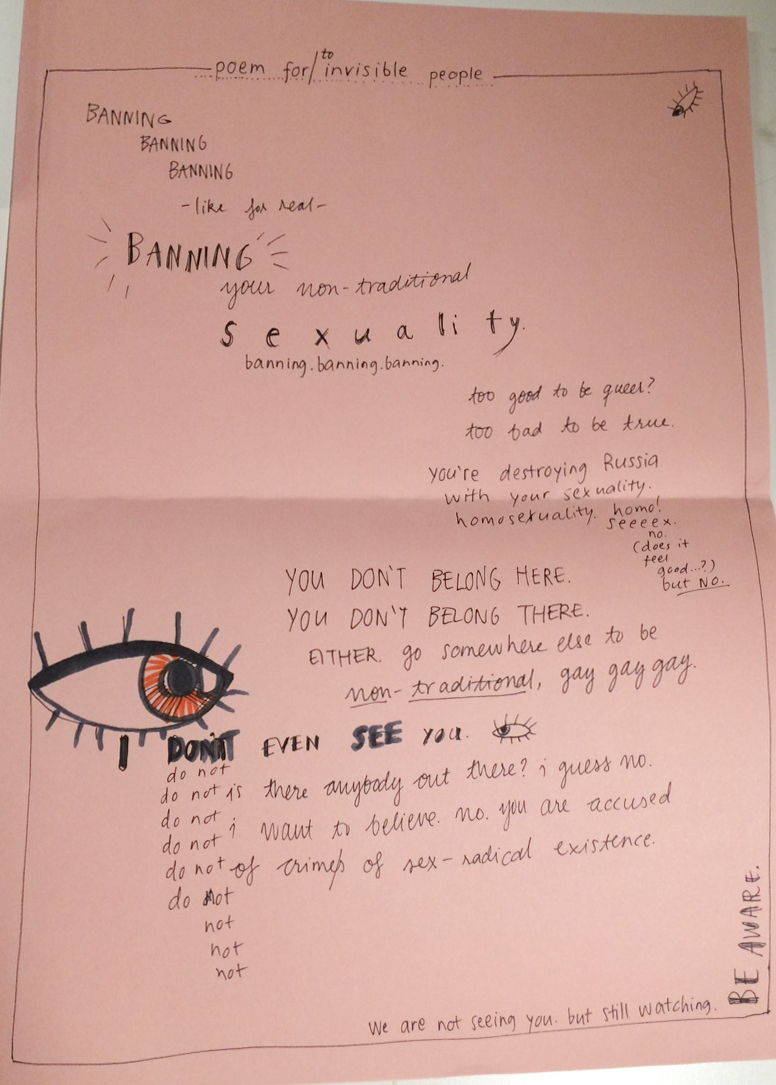 poem for/to invisible people
BANNING
BANNING
BANNING
-like for real-
BANNING
your non-traditional
sexuality.
banning.banning.banning.
too good to be queer?
too bad to be true.
you're destroying Russia
with your sexuality.
homosexuality. homo!
seeeex.
no.
(does it
feel
good...?)
but NO.
YOU DON'T BELONG HERE.
YOU DON'T BELONG THERE.
EITHER. go somewhere else to be
non-traditional, gay gay gay.
I DON'T EVEN SEE YOU.
do not
do not is there anybody out there? i guess no.
do not
do not i want to believe. no. you are accused
do not of crimes of sex-radical existence.
do not
not
not
not
BE AWARE.
We are not seeing you. but still watching.